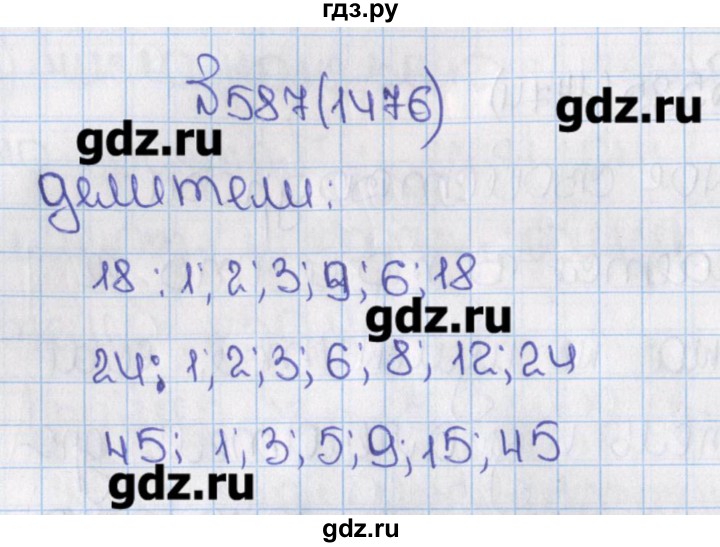 гдз.ру
№587(1476)
gdz.ru
gdz.ru
делители:
18: 1; 2; 3; 9; 6; 18
gdz.ru
24: 1; 2; 3; 6; 8; 12; 24
45; 1; 3; 5; 9; 15; 45
gdz.ru
gdz.ru